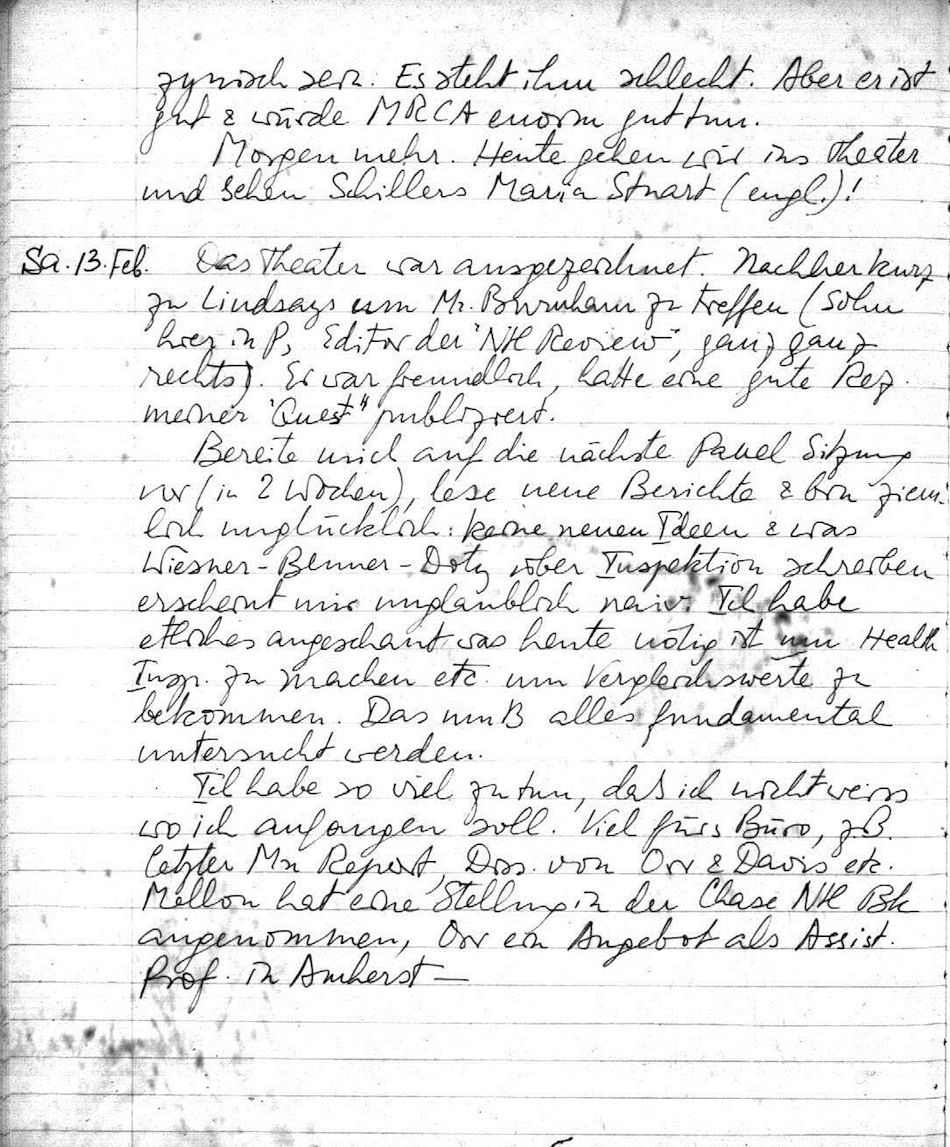 zynisch sein. Es steht ihm schlecht. Aber er ist
gut & würde MRCA enorm guttun.
Morgen mehr. Heute gehen wir ins Theater
und sehen Schillers Maria Stuart (engl.)!
Sa. 13. Feb. Das Theater war ausgezeichnet. Nachher kurz
zu Lindsays um Mr. Burnham zu treffen (Sohn
hier in P, Editor der "Ntl Review", ganz ganz
rechts). Er war freundlich, hatte eine gute Rez.
meiner "Quest" publiziert.
Bereite mich auf die nächste Panel Sitzung
vor (in 2 Wochen), lese neue Berichte & bin ziem-
lich unglücklich: keine neuen Ideen & was
Wiesner-Benner-Doty über Inspektion schreiben
erscheint mir unglaublich naiv. Ich habe
etliches angeschaut was heute nötig ist um Health
Insp. zu machen etc. um Vergleichswerte zu
bekommen. Das muß alles fundamental
untersucht werden.
Ich habe so viel zu tun, daß ich nicht weiss
wo ich anfangen soll. Viel fürs Büro, z.B.
letzter Mn Report, Diss. von Orr & Davis etc.
Mellon hat eine Stellung in der Chase Ntl Bk
angenommen, Orr ein Angebot als Assist.
Prof. in Amherst —